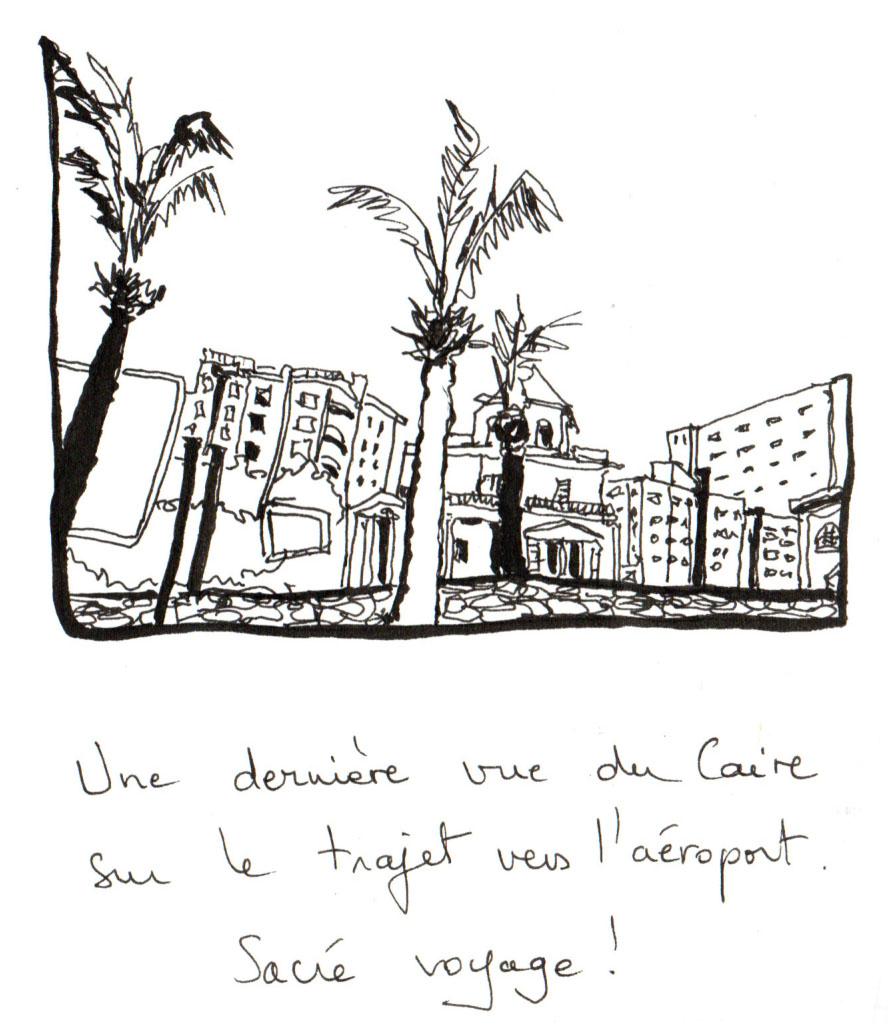 Une dernière vue du Caire
sur le trajet vers l'aéroport.
Sacré voyage !